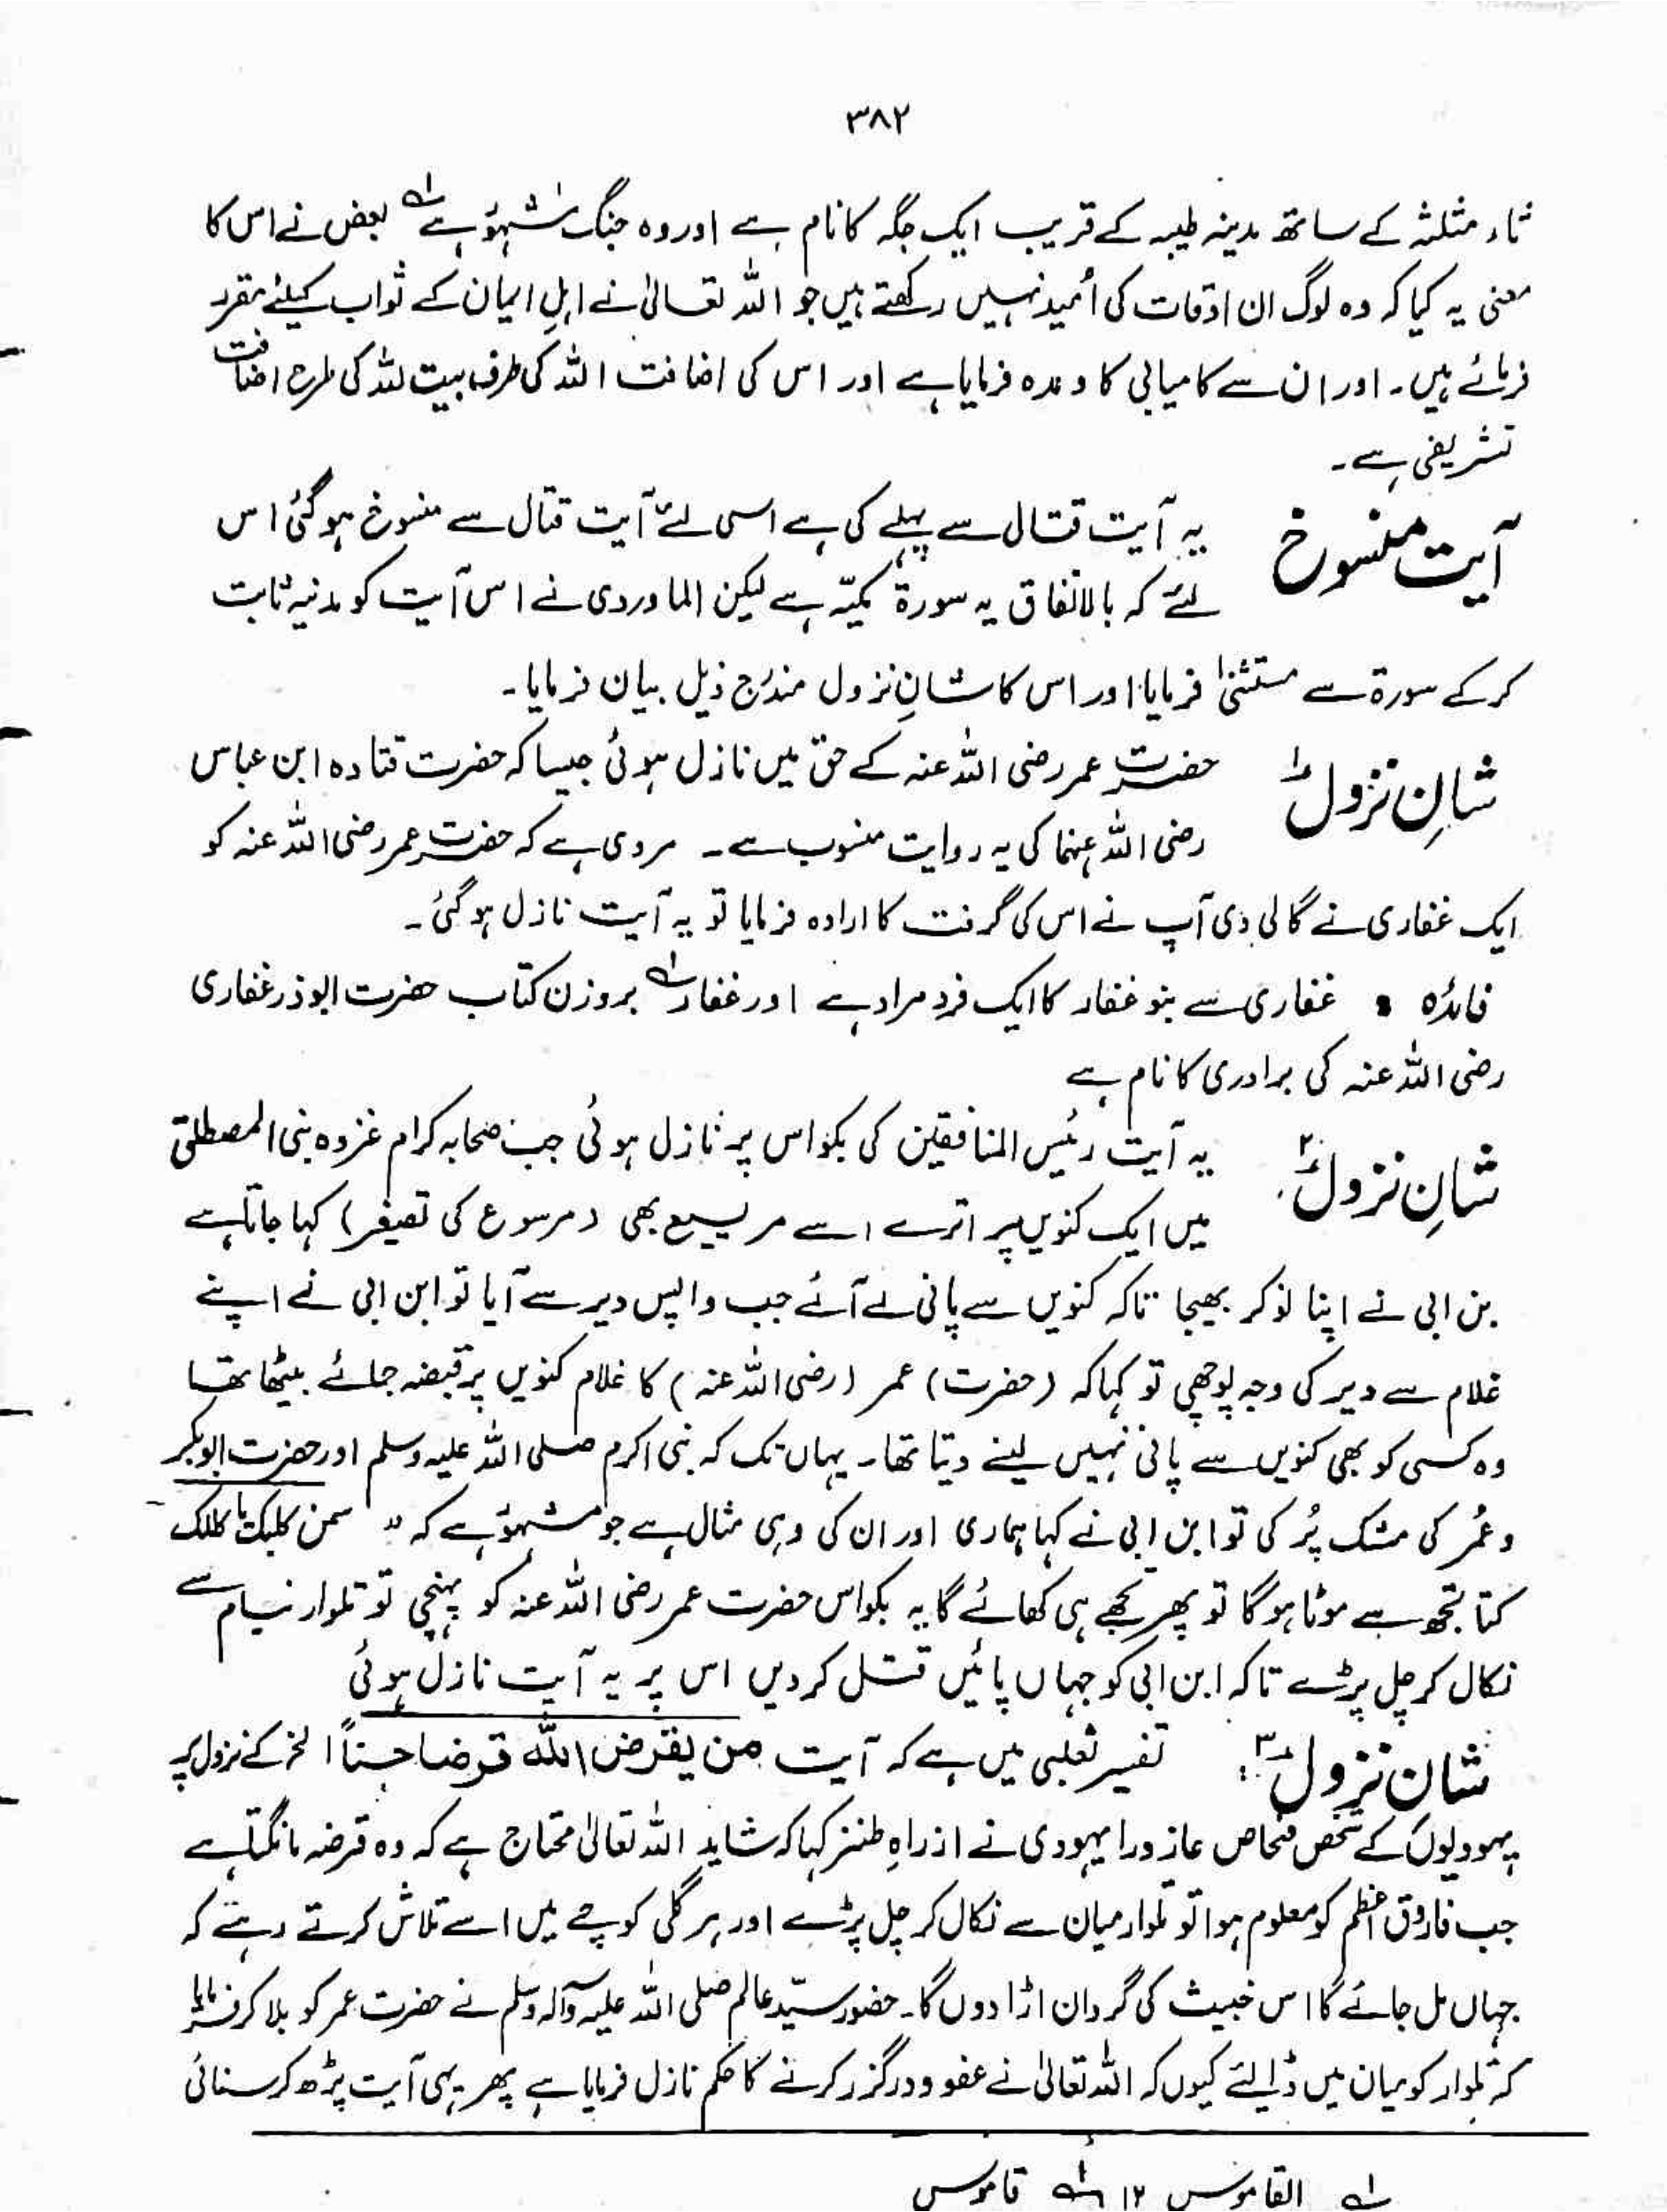 ۳۸۲
ثاء مثلثہ کے ساتھ مدینہ طیبہ کے قریب ایک جگہ کا نام ہے اور وہ جنگ مشہور ہے لہ بعض نے اس کا
معنی یہ کیا کہ وہ لوگ ان اوقات کی اُمید نہیں رکھتے ہیں جو اللہ تعالیٰ نے اہلِ ایمان کے ثواب کیلئے مقرر
فرمائے ہیں۔ اور ان سے کامیابی کا وعدہ فرمایا ہے اور اس کی اضافت اللہ کی طرف بیت اللہ کی طرح اضافت
تشریفی ہے۔
آیت منسوخ یہ آیت قتال سے پہلے کی ہے اسی لئے آیت قتال سے منسوخ ہوگئی اس
لئے کہ بالاتفاق یہ سورۃ مکیّہ ہے لیکن الماوردی نے اس آیت کو مدنیہ ثابت
کرکے سورۃ سے مستثنیٰ فرمایا اور اس کا شانِ نزول مندرج ذیل بیان فرمایا۔
شانِ نزول ۱ حضرت عمر رضی اللہ عنہ کے حق میں نازل ہوئی جیسا کہ حضرت قتادہ ابن عباس
رضی اللہ عنہما کی یہ روایت منسوب ہے۔ مروی ہے کہ حضرت عمر رضی اللہ عنہ کو
ایک غفاری نے گالی دی آپ نے اس کی گرفت کا ارادہ فرمایا تو یہ آیت نازل ہوگئی۔
فائدہ : غفاری سے بنو غفار کا ایک فرد مراد ہے اور غفار لہ بروزن کتاب حضرت ابوذر غفاری
رضی اللہ عنہ کی برادری کا نام ہے
شانِ نزول ۲ یہ آیت رئیس المنافقین کی بکواس پر نازل ہوئی جب صحابہ کرام غزوہ بنی المصطلق
میں ایک کنویں پر اترے اسے مریسیع بھی (مرسوع کی تصغیر) کہا جاتا ہے
بن ابی نے اپنا نوکر بھیجا تاکہ کنویں سے پانی لے آئے جب واپس دیر سے آیا تو ابن ابی نے اپنے
غلام سے دیر کی وجہ پوچھی تو کہا کہ (حضرت) عمر (رضی اللہ عنہ) کا غلام کنویں پر قبضہ جمائے بیٹھا تھا
وہ کسی کو بھی کنویں سے پانی نہیں لینے دیتا تھا۔ یہاں تک کہ نبی اکرم صلی اللہ علیہ وسلم اور حضرت ابوبکر
و عُمر کی مشک پُر کی تو ابن ابی نے کہا ہماری اور ان کی وہی مثال ہے جو مشہور ہے کہ " سمن کلبک یا کلک
کتا تجھ سے موٹا ہوگا تو پھر تجھے ہی کھائے گا یہ بکواس حضرت عمر رضی اللہ عنہ کو پہنچی تو تلوار نیام سے
نکال کر چل پڑے تاکہ ابن ابی کو جہاں پائیں قتل کردیں اس پر یہ آیت نازل ہوئی
شان نزول ۳: تفسیر ثعلبی میں ہے کہ آیت من یقرض اللہ قرضا حسناً الخ کے نزول پر
یہودیوں کے شخص فنحاص عازورا یہودی نے از راہِ طنز کہا کہ شاید اللہ تعالیٰ محتاج ہے کہ وہ قرضہ مانگتا ہے
جب فاروق اعظم کو معلوم ہوا تو تلوار میان سے نکال کر چل پڑے اور ہر گلی کوچے میں اسے تلاش کرتے رہتے کہ
جہاں مل جائے گا اس خبیث کی گردان اڑا دوں گا۔ حضور سیّد عالم صلی اللہ علیہ وآلہ وسلم نے حضرت عمر کو بلا کر فرمایا
کہ تلوار کو میان میں ڈالئے کیوں کہ اللہ تعالیٰ نے عفو و درگزر کرنے کا حکم نازل فرمایا ہے پھر یہی آیت پڑھ کر سنائی
لہ القاموس ۱۲ لہ قاموس